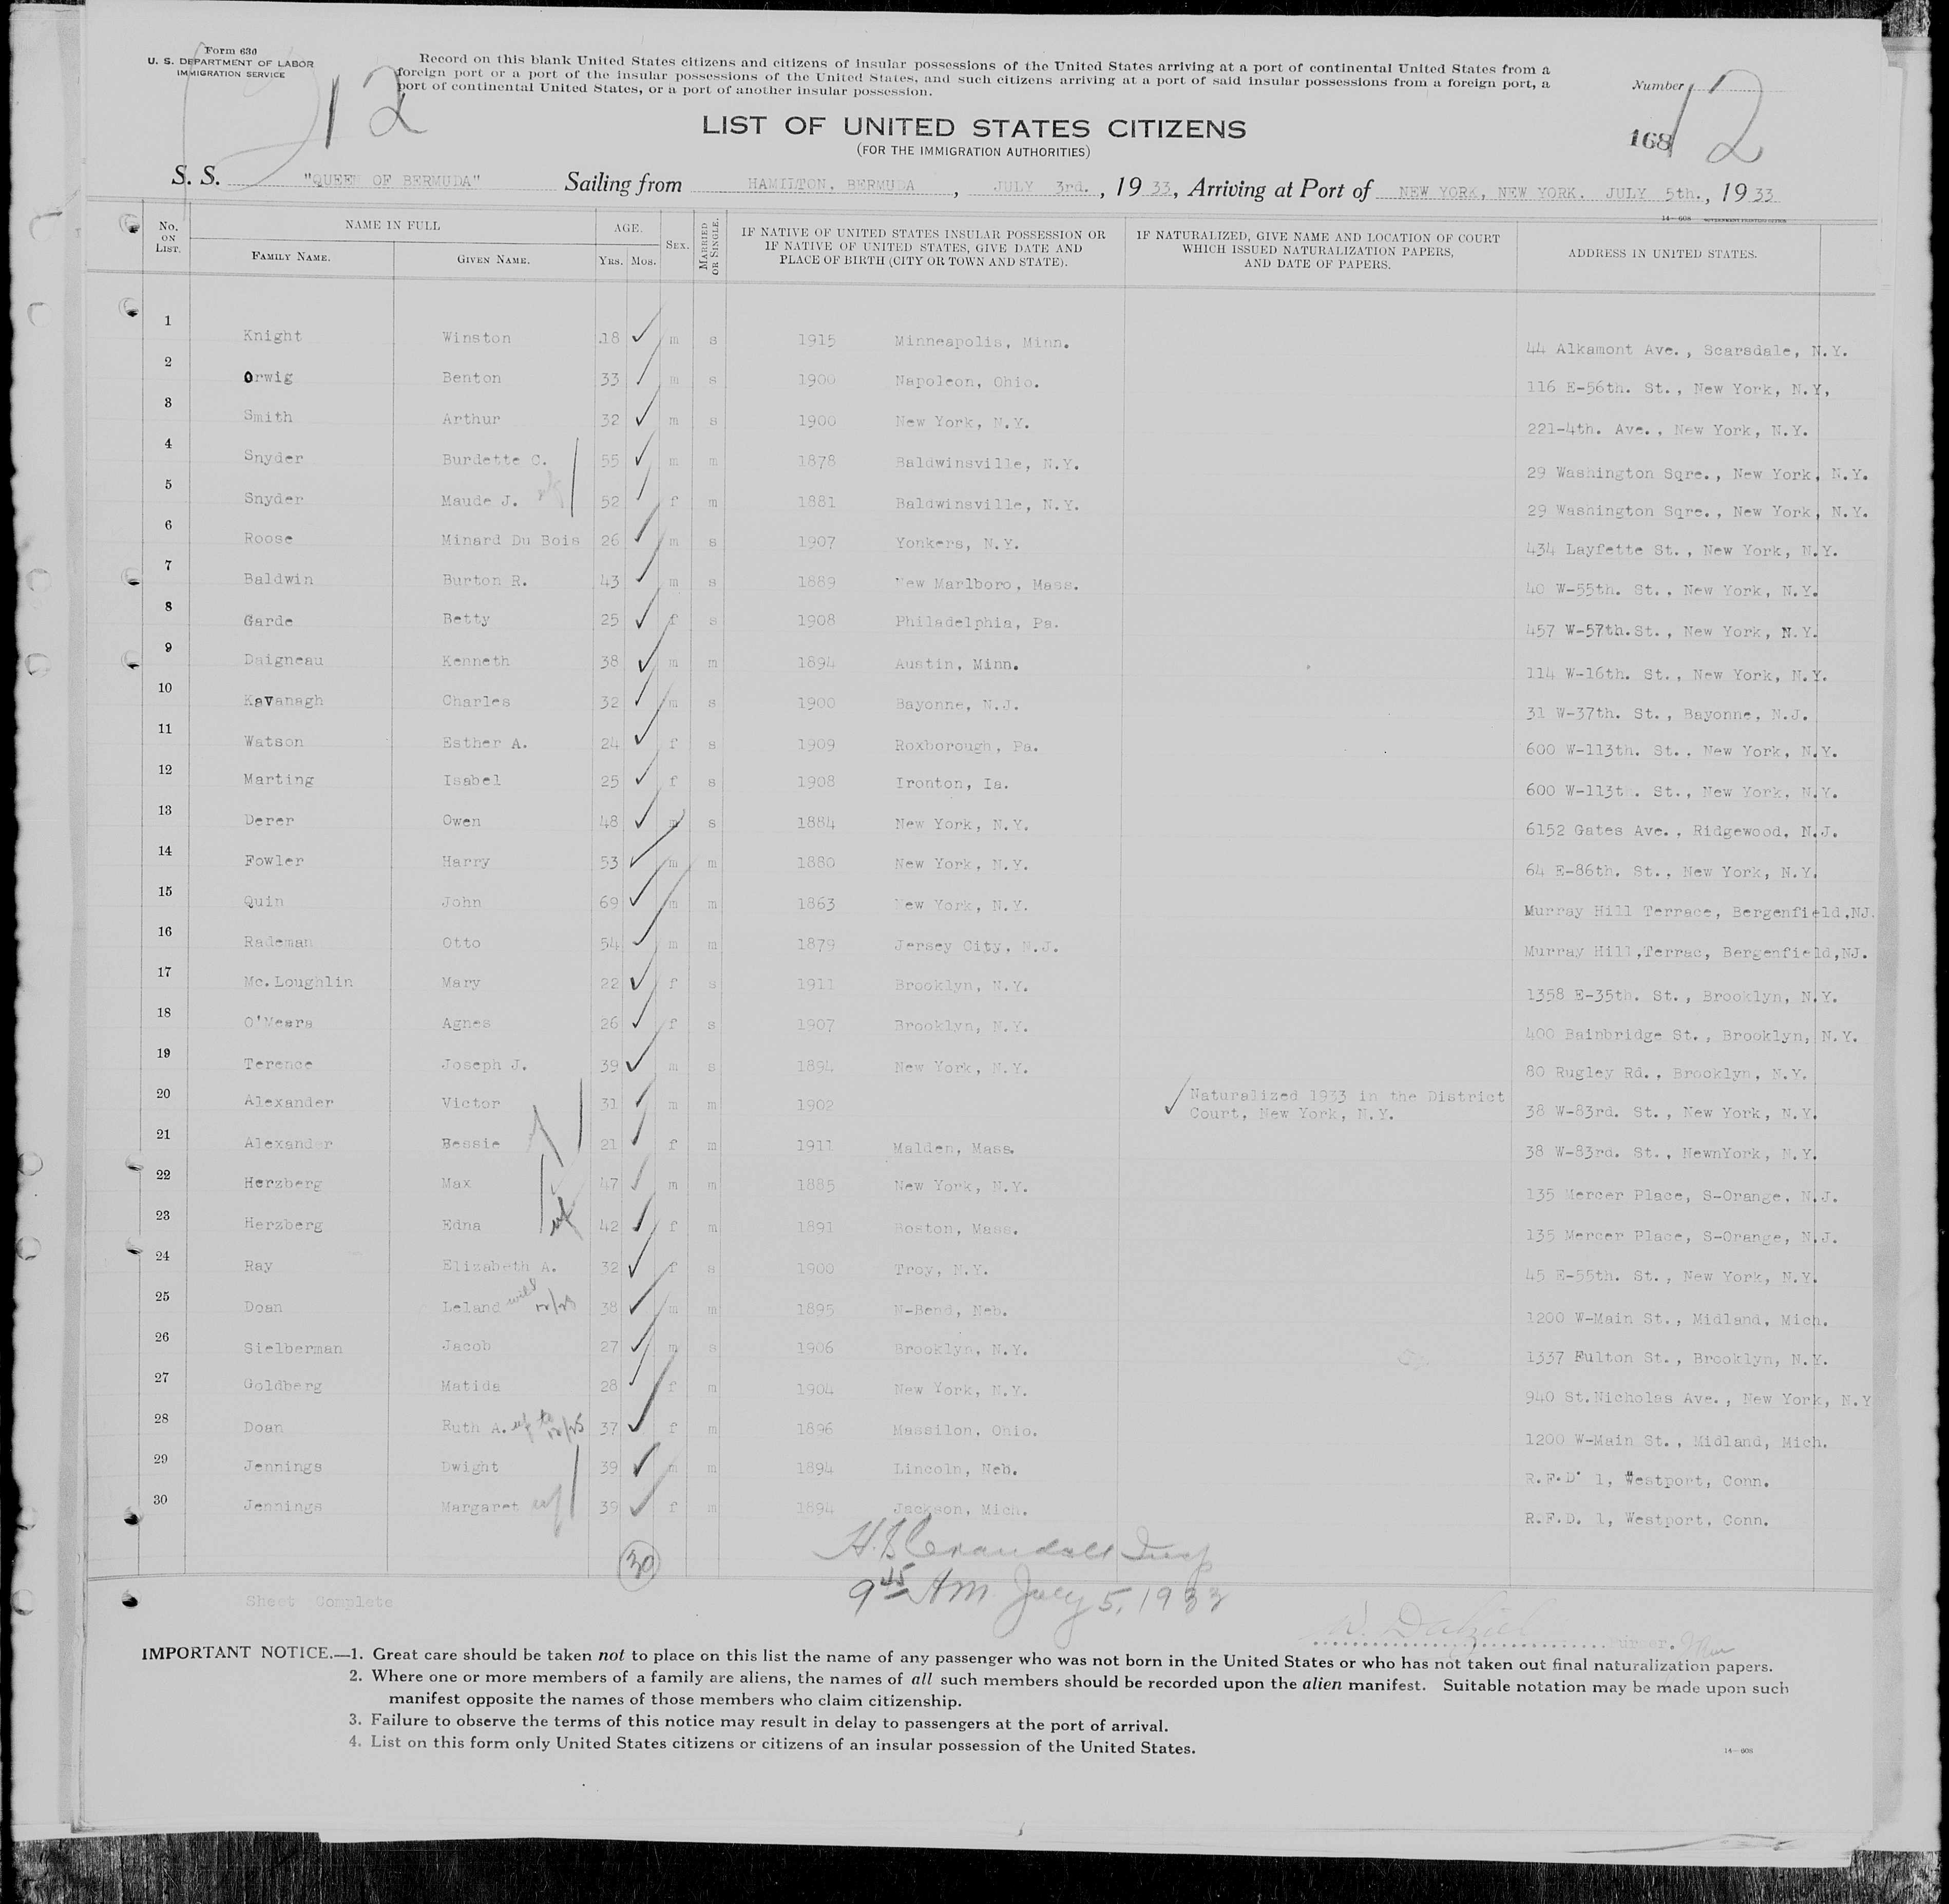 Form 630
U. S. DEPARTMENT OF LABOR
IMMIGRATION SERVICE
12
Record on this blank United States citizens and citizens of insular possessions of the United States arriving at a port of continental United States from a
foreign port or a port of the insular possessions of the United States, and such citizens arriving at a port of said insular possessions from a foreign port, a
port of continental United States, or a port of another insular possession.
Number 12
168
LIST OF UNITED STATES CITIZENS
(FOR THE IMMIGRATION AUTHORITIES)
S. S. "QUEEN OF BERMUDA" Sailing from HAMILTON, BERMUDA, JULY 3rd., 1933, Arriving at Port of NEW YORK, NEW YORK. JULY 5th., 1933
14—608 GOVERNMENT PRINTING OFFICE
No. ON LIST. NAME IN FULL FAMILY NAME. GIVEN NAME. AGE. YRS. MOS. SEX. MARRIED OR SINGLE. IF NATIVE OF UNITED STATES INSULAR POSSESSION OR IF NATIVE OF UNITED STATES, GIVE DATE AND PLACE OF BIRTH (CITY OR TOWN AND STATE). IF NATURALIZED, GIVE NAME AND LOCATION OF COURT WHICH ISSUED NATURALIZATION PAPERS, AND DATE OF PAPERS. ADDRESS IN UNITED STATES.
1 Knight Winston 18 m s 1915 Minneapolis, Minn. 44 Alkamont Ave., Scarsdale, N.Y.
2 Orwig Benton 33 m s 1900 Napoleon, Ohio. 116 E-56th. St., New York, N.Y,
3 Smith Arthur 32 m s 1900 New York, N.Y. 221-4th. Ave., New York, N.Y.
4 Snyder Burdette C. 55 m m 1878 Baldwinsville, N.Y. 29 Washington Sqre., New York, N.Y.
5 Snyder Maude J. wf 52 f m 1881 Baldwinsville, N.Y. 29 Washington Sqre., New York, N.Y.
6 Roose Minard Du Bois 26 m s 1907 Yonkers, N.Y. 434 Layfette St., New York, N.Y.
7 Baldwin Burton R. 43 m s 1889 New Marlboro, Mass. 40 W-55th. St., New York, N.Y.
8 Garde Betty 25 f s 1908 Philadelphia, Pa. 457 W-57th.St., New York, N.Y.
9 Daigneau Kenneth 38 m m 1894 Austin, Minn. 114 W-16th. St., New York, N.Y.
10 Kavanagh Charles 32 m s 1900 Bayonne, N.J. 31 W-37th. St., Bayonne, N.J.
11 Watson Esther A. 24 f s 1909 Roxborough, Pa. 600 W-113th. St., New York, N.Y.
12 Marting Isabel 25 f s 1908 Ironton, Ia. 600 W-113th. St., New York, N.Y.
13 Derer Owen 48 m s 1884 New York, N.Y. 6152 Gates Ave., Ridgewood, N.J.
14 Fowler Harry 53 m m 1880 New York, N.Y. 64 E-86th. St., New York, N.Y.
15 Quin John 69 m m 1863 New York, N.Y. Murray Hill Terrace, Bergenfield,NJ.
16 Rademan Otto 54 m m 1879 Jersey City, N.J. Murray Hill,Terrac, Bergenfield,NJ.
17 Mc.Loughlin Mary 22 f s 1911 Brooklyn, N.Y. 1358 E-35th. St., Brooklyn, N.Y.
18 O'Meara Agnes 26 f s 1907 Brooklyn, N.Y. 400 Bainbridge St., Brooklyn, N.Y.
19 Terence Joseph J. 39 m s 1894 New York, N.Y. 80 Rugley Rd., Brooklyn, N.Y.
20 Alexander Victor 31 m m 1902 Naturalized 1933 in the District Court, New York, N.Y. 38 W-83rd. St., New York, N.Y.
21 Alexander Bessie 21 f m 1911 Malden, Mass. 38 W-83rd. St., NewnYork, N.Y.
22 Herzberg Max 47 m m 1885 New York, N.Y. 135 Mercer Place, S-Orange, N.J.
23 Herzberg Edna wf 42 f m 1891 Boston, Mass. 135 Mercer Place, S-Orange, N.J.
24 Ray Elizabeth A. 32 f s 1900 Troy, N.Y. 45 E-55th. St., New York, N.Y.
25 Doan Leland 38 m m 1895 N-Bend, Neb. 1200 W-Main St., Midland, Mich.
26 Sielberman Jacob 27 m s 1906 Brooklyn, N.Y. 1337 Fulton St., Brooklyn, N.Y.
27 Goldberg Matida 28 f m 1904 New York, N.Y. 940 St.Nicholas Ave., New York, N.Y
28 Doan Ruth A. wf to 12/25 37 f m 1896 Massilon, Ohio. 1200 W-Main St., Midland, Mich.
29 Jennings Dwight 39 m m 1894 Lincoln, Neb. R.F.D. 1, Westport, Conn.
30 Jennings Margaret wf 39 f m 1894 Jackson, Mich. R.F.D. 1, Westport, Conn.
30
H. B. Crandall Insp
9 45 AM July 5, 1933
Sheet Complete
Purser.
IMPORTANT NOTICE.—1. Great care should be taken not to place on this list the name of any passenger who was not born in the United States or who has not taken out final naturalization papers.
2. Where one or more members of a family are aliens, the names of all such members should be recorded upon the alien manifest. Suitable notation may be made upon such
manifest opposite the names of those members who claim citizenship.
3. Failure to observe the terms of this notice may result in delay to passengers at the port of arrival.
4. List on this form only United States citizens or citizens of an insular possession of the United States.
14—608